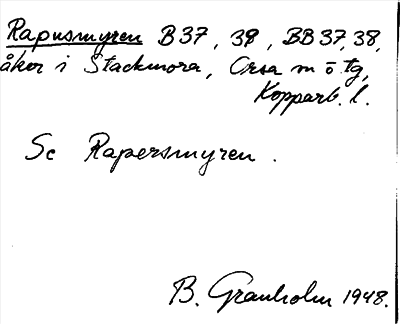 Rapusmyren B37, 39, BB37, 38,
åker i Stackmora, Orsa m o tg,
Kopparb. l.
Se Rapersmyren.
B. Granholm 1948.